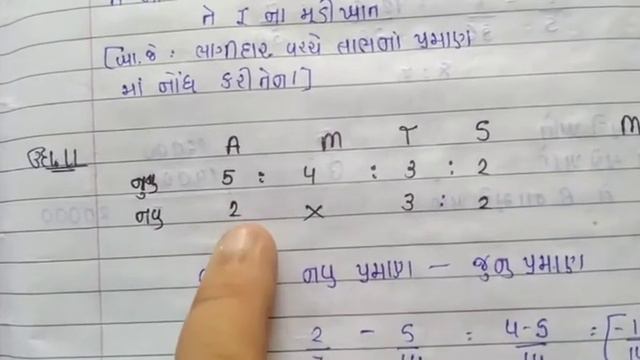 ને I ના મૂડીખાતે
[બા.જે : ભાગીદાર વચ્ચે લાભના પ્રમાણ
માં નોંધ કરી તેના]
ઉદા.11 A M T S M
જુનુ 5 : 4 : 3 : 2
નવુ 2 × 3 : 2
નવુ પ્રમાણ – જુનુ પ્રમાણ
2 – 5 : 4-5 : [-1